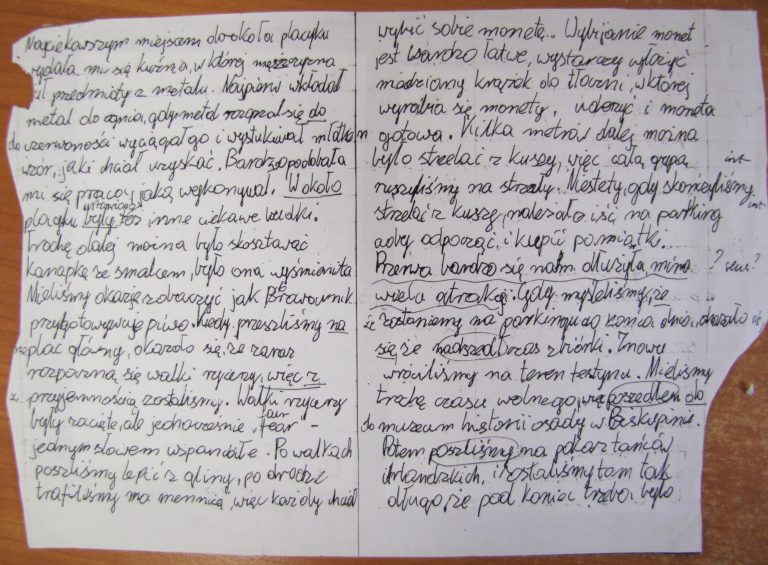 Najciekawszym miejscem dookoła placyku
wydała mi się kuźnia, w której mężczyzna
przedmioty z metalu. Najpierw wkładał
metal do ognia, gdy metal rozgrzał się do
do czerwoności wyciągał go i wystukiwał młotkiem
wzór, jaki chciał uzyskać. Bardzo podobała
mi się praca, jaką wykonywał. W około
placyku były też inne ciekawe budki.
Trochę dalej można było skosztować
kanapkę ze smalcem, było ona wyśmienita.
Mieliśmy okazję zobaczyć jak Browarnik
przygotowywuje piwo. Kiedy przeszliśmy na
na plac główny, okazło się, że zaraz
rozpoczną się walki rycerzy, więc z
z przyjemnością zostaliśmy. Walki rycerzy
były zacięte, ale jednocześnie „fear" fair -
jednym słowem wspaniałe. Po walkach
poszliśmy lepić z gliny, po drodze
trafiliśmy na mennicę, więc każdy chciał
wybić sobie monetę... Wybijanie monet
jest bardzo łatwe, wystarczy wyłożyć
miedziany krążek do tłoczni, w której
wyrabia się monety, uderzyć i moneta
gotowa. Kilka metrów dalej można
było strzelać z kuszy, więc całą grupą int
ruszyliśmy na strzały. Niestety, gdy skończyliśmy
strzelać z kuszy, należało iść na parking int
aby odpocząć, i kupić pamiątki.
Przerwa bardzo się nam dłużyła mimo ? sens?
wielu atrakcji. Gdy myśleliśmy, że
że zostaniemy na parkingu do końca dnia, okazało
się, że nadszedł czas zbiórki. Znowu
wróciliśmy na teren festynu. Mieliśmy
trochę czasu wolnego, więc poszedłem do
do muzeum historii osady w Biskupinie.
Potem poszliśmy na pokaz tańców
irlandzkich, i zostaliśmy tam tak
długo, że pod koniec trzeba było